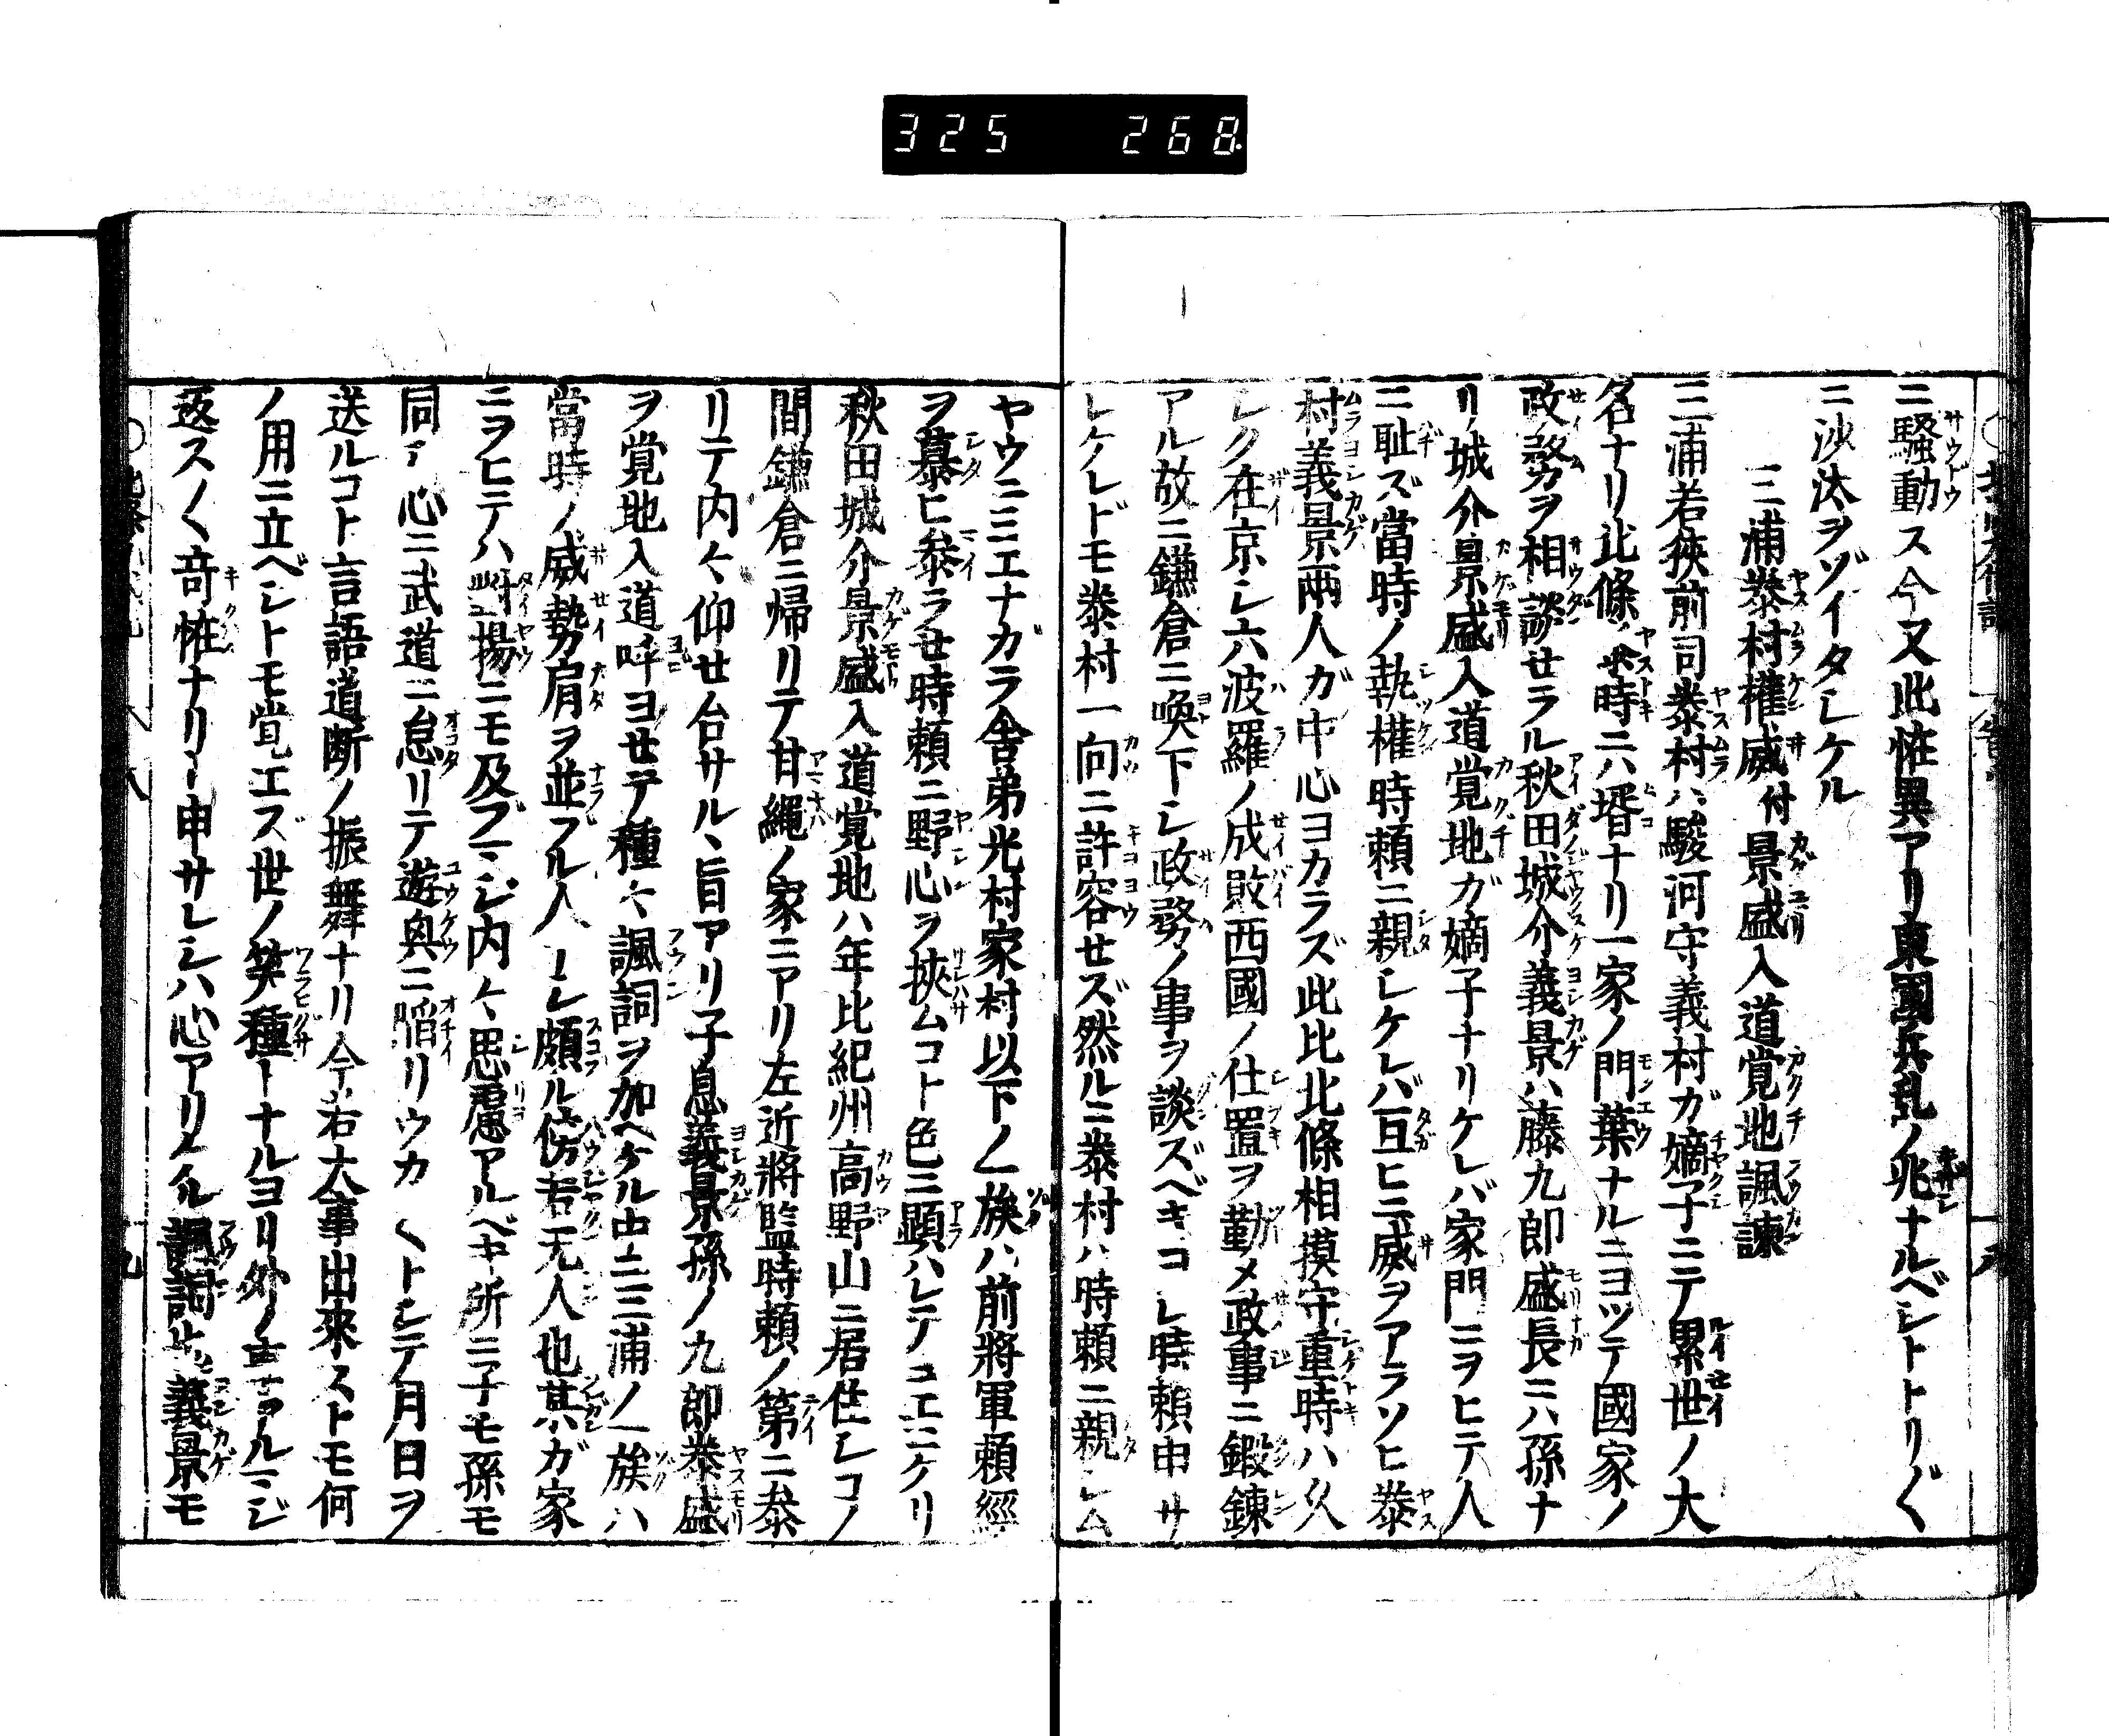 325 268
ニ騒動ス今又此恠異アリ東國兵乱ノ兆ナルベシトトリ〲
ニ沙汰ヲゾイタシケル
三浦泰村權威付景盛入道覚地諷諫
三浦若狹前司泰村ハ駿河守義村ガ嫡子ニテ累世ノ大
名ナリ北條泰時ニハ壻ナリ一家ノ門葉ナルニヨツテ國家ノ
政務ヲ相談せラル秋田城介義景ハ藤九郎盛長ニハ孫ナ
リ城介景盛入道覚地ガ嫡子ナリケレバ家門ニヲヒテ人
ニ耻ズ當時ノ執權時頼ニ親シケレバ互ヒニ威ヲアラソヒ泰
村義景兩人ガ中心ヨカラズ此比北條相摸守重時ハ久
シク在京シ六波羅ノ成敗西國ノ仕置ヲ勤メ政事ニ鍛錬
アル故ニ鎌倉ニ喚下シ政務ノ事ヲ談ズベキコレ時頼申サ
レケレドモ泰村一向ニ許容せズ然ルニ泰村ハ時頼ニ親シム
ヤウニミエナガラ舎弟光村家村以下ノ一族ハ前將軍頼經
ヲ慕ヒ泰ラせ時頼ニ野心ヲ挾ムコト色ニ顕ハレテユエニケリ
秋田城介景盛入道覚地ハ年比紀州高野山ニ居住シコノ
間鎌倉ニ帰リテ甘縄ノ家ニアリ左近將監時頼ノ第ニ泰
リテ内々仰せ合サルヽ旨アリ子息義景孫ノ九郎泰盛
ヲ覚地入道呼ヨせテ種々諷詞ヲ加ヘケル中ニ三浦ノ一族ハ
當時ノ威勢肩ヲ並フル人ーレ頗ル傍若无人也某ガ家
ニヲヒテハ對揚ニモ及ブマジ内々思慮アルベキ所ニ子モ孫モ
同ク心ニ武道ニ怠リテ遊興ニ陷リウカ〱トシテ月日ヲ
送ルコト言語道断ノ振舞ナリ今若大事出來ストモ何
ノ用ニ立ベシトモ覚エズ世ノ笑種ーナルヨリ外ノ事アルマジ
返ス〱竒恠ナリー申サレシハ心アリケル諷詞也義景モ